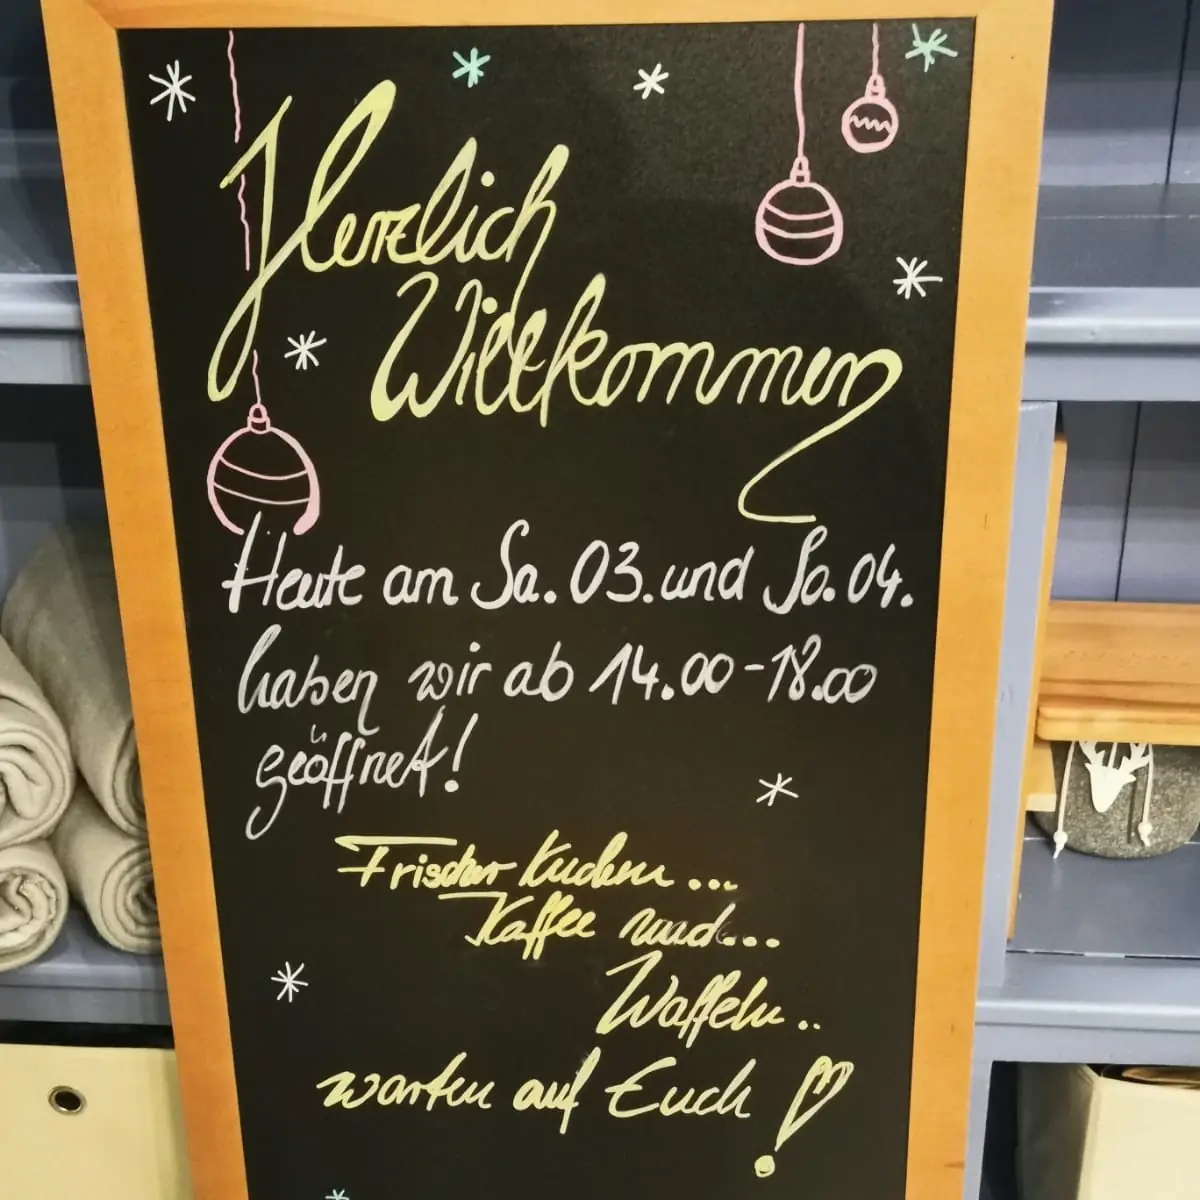 Herzlich
Willkommen
Heute am Sa. 03. und So. 04.
haben wir ab 14.00-18.00
geöffnet!
Frischer Kuchen...
Kaffee und...
Waffeln..
warten auf Euch!